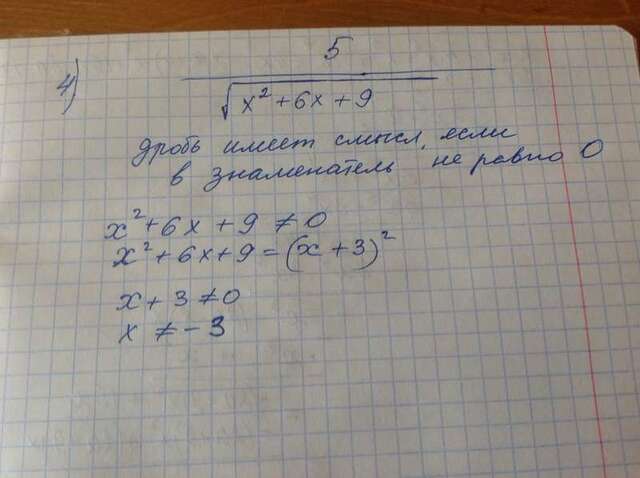 4) 5
√x² + 6x + 9
дробь имеет смысл, если
в знаменатель не равно 0
x² + 6x + 9 ≠ 0
x² + 6x + 9 = (x + 3)²
x + 3 ≠ 0
x ≠ -3